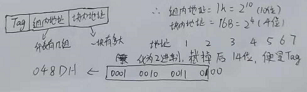 Tag 组内地址 块内地址
∴ 组内地址: 1K = 2^10 (10位)
块内地址: 16B = 2^4 (4位)
分成有几组 一块有多大
地址 1 2 3 4 5 6 7
化为2进制, 抹掉后14位, 便是Tag
048DH ← 0001 0010 0011 0100